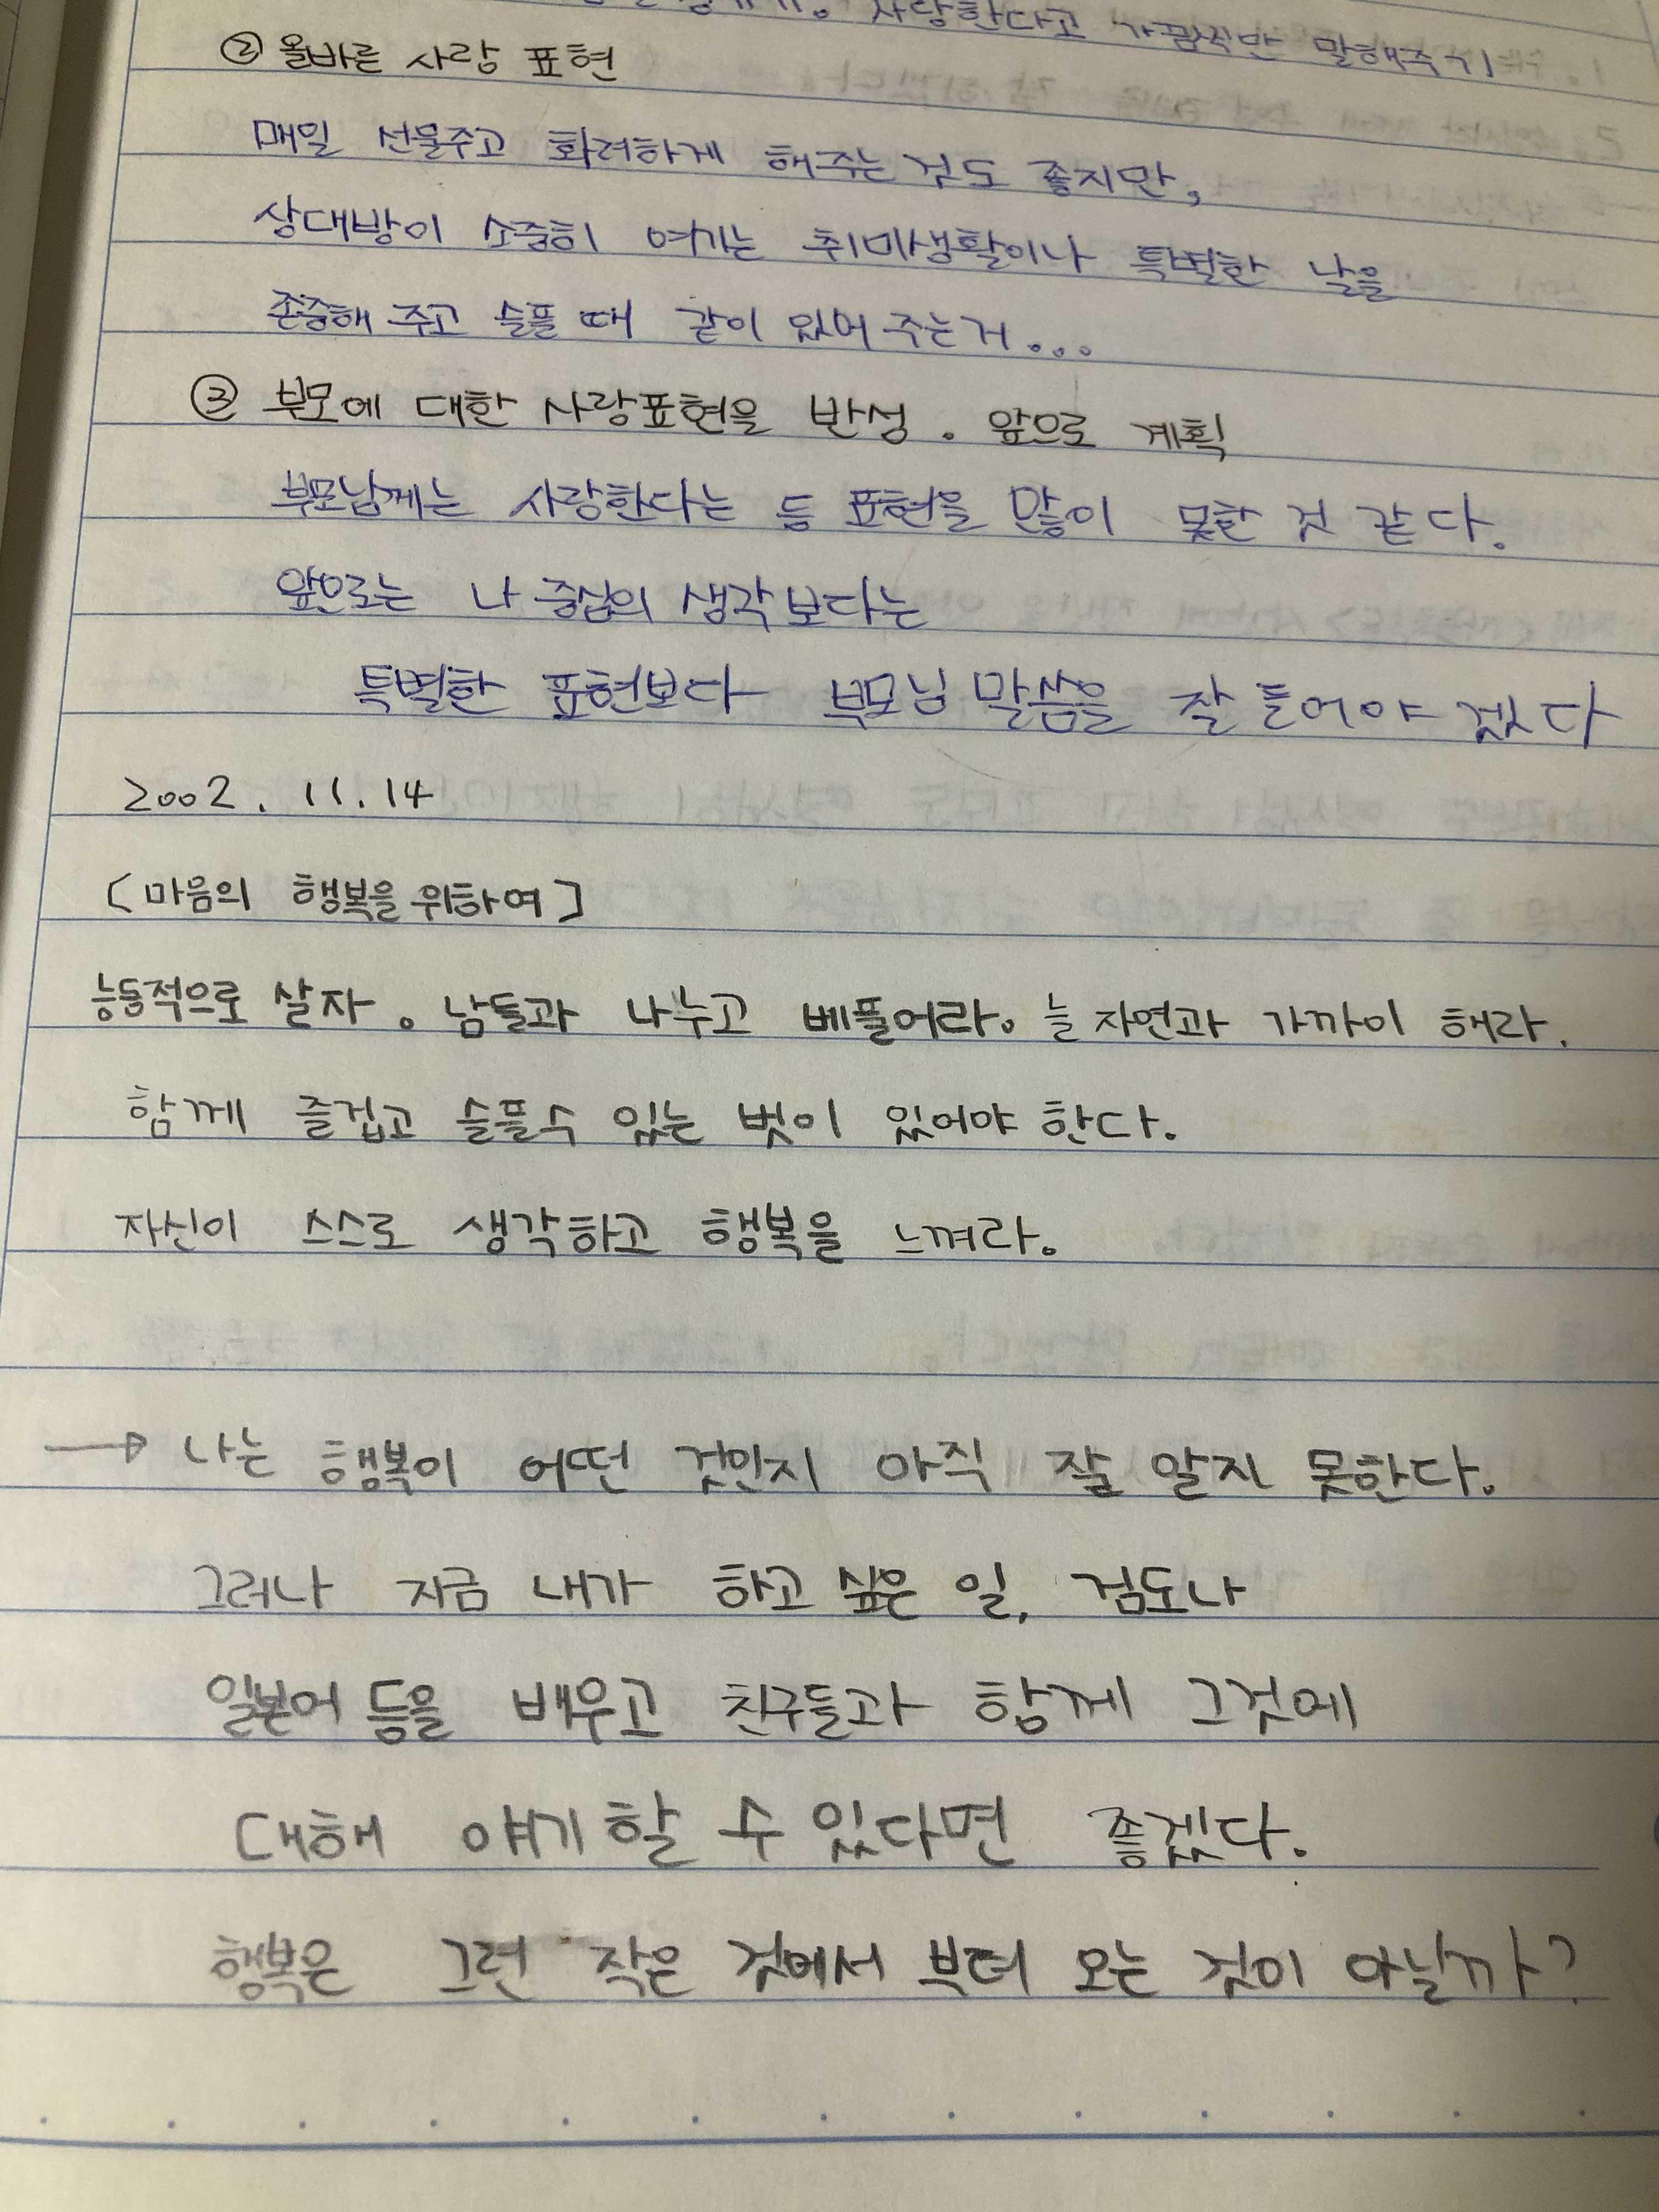 사랑한다고 가끔씩만 말해주기
② 올바른 사랑 표현
매일 선물주고 화려하게 해주는 것도 좋지만,
상대방이 소중히 여기는 취미생활이나 특별한 날을
존중해 주고 슬플 때 같이 있어 주는거...
③ 부모에 대한 사랑표현을 반성. 앞으로 계획
부모님께는 사랑한다는 등 표현을 많이 못한 것 같다.
앞으로는 나 중심의 생각보다는
특별한 표현보다 부모님 말씀을 잘 들어야 겠다
2002. 11. 14
[마음의 행복을 위하여]
능동적으로 살자. 남들과 나누고 베풀어라. 늘 자연과 가까이 해라.
함께 즐겁고 슬플수 있는 벗이 있어야 한다.
자신이 스스로 생각하고 행복을 느껴라.
→ 나는 행복이 어떤 것인지 아직 잘 알지 못한다.
그러나 지금 내가 하고 싶은 일, 검도나
일본어 등을 배우고 친구들과 함께 그것에
대해 얘기할 수 있다면 좋겠다.
행복은 그런 작은 것에서 부터 오는 것이 아닐까?